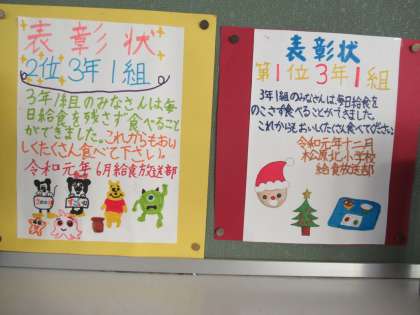 表彰状
2位 3年1組
3年1組のみなさんは毎
日給食を残さず食べること
ができました。これからもおい
しくたくさん食べて下さい。
令和元年 6月給食放送部
表彰状
第1位3年1組
3年1組のみなさんは毎日給食を
のこさず食べることができました。
これからもおいしくたくさん食べてください。
令和元年十二月
松原北小学校
給食放送部